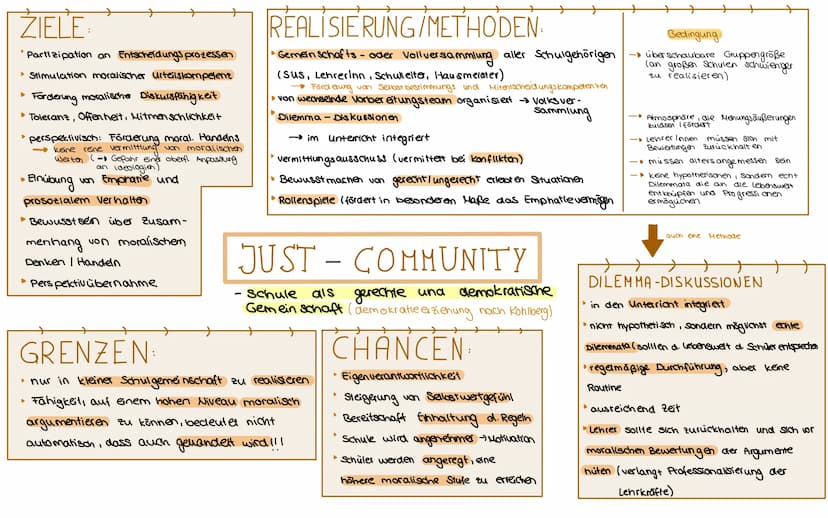 ZIELE:
Partizipation an Entscheidungsprozessen
Stimulation moralischer Urteilskompetent
Förderung moralischer Diskursfähigkeit
Toleranz, Offenheit, Mitmenschlichkeit
perspektivisch: Förderung moral. Handelns
→ keine reine Vermittlung von moralischen
Werten (→ Gefahr eine oberfl. Anpassung
an Ideologien)
Einübung von Empathie und
prosozialem Verhalten
Bewusstsein über Zusam-
menhang von moralischem
Denken / Handeln
Perspektivübernahme
REALISIERUNG/METHODEN:
Gemeinschafts- oder Vollversammlung aller Schulgehörigen
(SuS, LehrerInn, Schulleiter, Hausmeister)
→ Förderung von Selbstbestimmungs und Mitentscheidungskompetenten
von wechselnde Vorbereitungsteam organisiert → Volksver-
sammlung
Dilemma - Diskussionen
→ im Unterricht integriert
Vermittlungsausschuss (vermittelt bei Konflikten)
Bewusstmachen von gerecht/ungerecht erlebten Situationen
Rollenspiele (fördert in besonderen Maße das Emphatievermögen
Bedingung
→ überschaubare Gruppengröße
(an großen Schulen schwieriger
zu realisieren)
→ Atmosphäre, die Meinungsäußerungen
zulässt/fördert
→ LehrerInnen müssen sich mit
Bewertungen zurückhalten
→ müssen altersangemessen sein
→ keine hypothetischen, sondern echt
Dilemmata die an die Lebenswelt
anknüpfen und Progressionen
ermöglichen
auch eine Methode
JUST - COMMUNITY
- Schule als gerechte und demokratische
Gemeinschaft (demokratieerziehung nach Kohlberg)
DILEMMA-DISKUSSIONEN
in den Unterricht integriert
nicht hypothetisch, sondern möglichst echte
Dilemmata (sollten d. Lebenswelt d. Schüler entsprechen
regelmäßige Durchführung, aber keine
Routine
ausreichend Zeit
Lehrer sollte sich zurückhalten und sich vor
moralischen Bewertungen der Argumente
hüten (verlangt Professionalisierung der
Lehrkräfte)
GRENZEN:
nur in kleiner Schulgemeinschaft zu realisieren
Fähigkeit, auf einem hohen Niveau moralisch
argumentieren zu können, bedeutet nicht
automatisch, dass auch gehandelt wird!!!
CHANCEN:
Eigenverantwortlichkeit
Steigerung von Selbstwertgefühl
Bereitschaft Einhaltung d. Regeln
Schule wird angenehmer → Motivation
Schüler werden angeregt, eine
höhere moralische Stufe zu erreichen